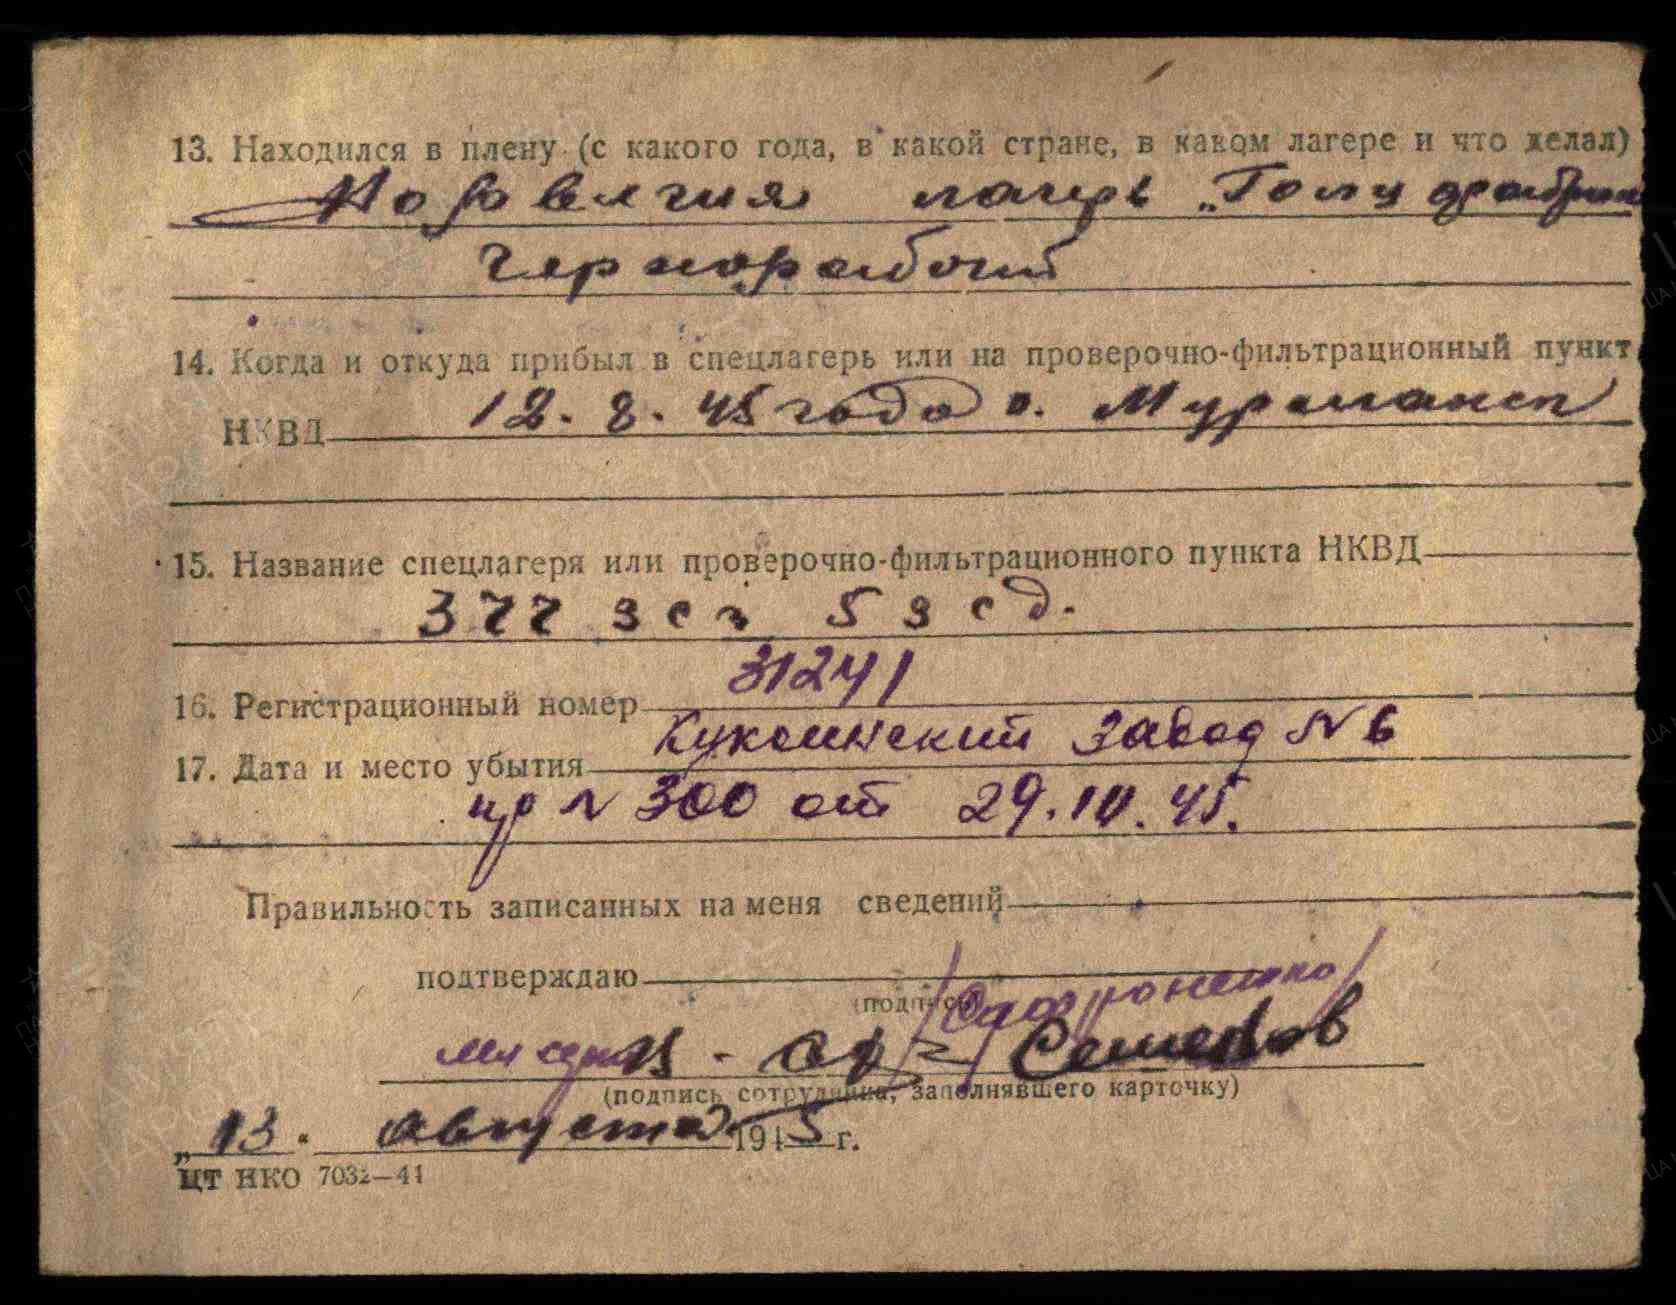 13. Находился в плену (с какого года, в какой стране, в каком лагере и что делал)
Норвегия лагерь „Голц
Чернорабочий
14. Когда и откуда прибыл в спецлагерь или на проверочно-фильтрационный пункт
12. 8. 45 года г. Мурманск
НКВД
15. Название спецлагеря или проверочно-фильтрационного пункта НКВД
377 зсп 5 зсд.
31241
16. Регистрационный номер
завод № 6
17. Дата и место убытия
пр № 300 от 29.10.45.
Правильность записанных на меня сведений
подтверждаю
(подпись)
(подпись сотрудника, заполнявшего карточку)
„13. августа 1945 г.
ЦТ НКО 7032—44